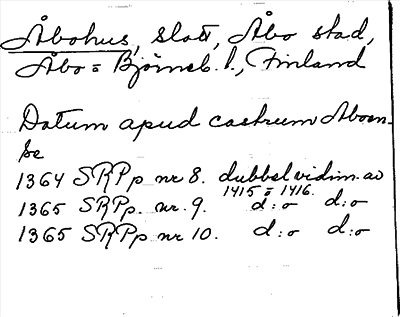 Åbohus, slott, Åbo stad,
Åbo = Björneb. l., Finland
Datum apud castrum Aboen-
se
1364 SRPp nr 8. dubbel vidim. av
1415 = 1416.
1365 SRPp. nr. 9. d:o d:o
1365 SRPp nr 10. d:o d:o